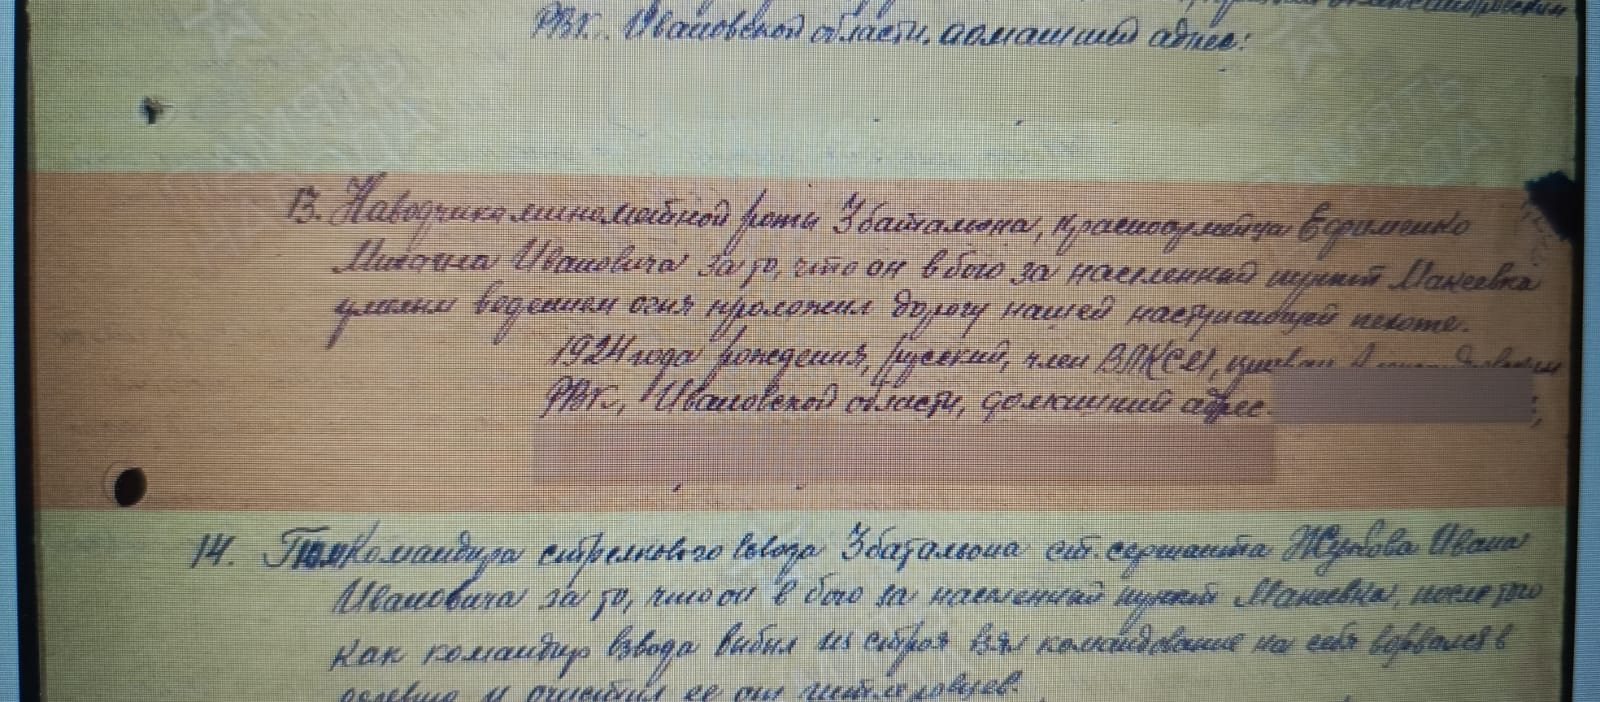 РВК. Ивановской области, домашний адрес:
ПАМЯТЬ
13. Наводчика минометной роты 3 батальона, красноармейца Ефименко
Михаила Ивановича за то, что он в бою за населенный пункт Макеевка
умелым ведением огня проложил дорогу нашей наступающей пехоте.
1924 года рождения, русский, член ВЛКСМ, призван
РВК, Ивановской области, домашний адрес:
14. Помкомандира стрелкового взвода 3 батальона ст. сержанта Жукова Ивана
Ивановича за то, что он в бою за населенный пункт Макеевка, после того
как командир взвода выбыл из строя взял командование на себя ворвался в
деревню и очистил ее от